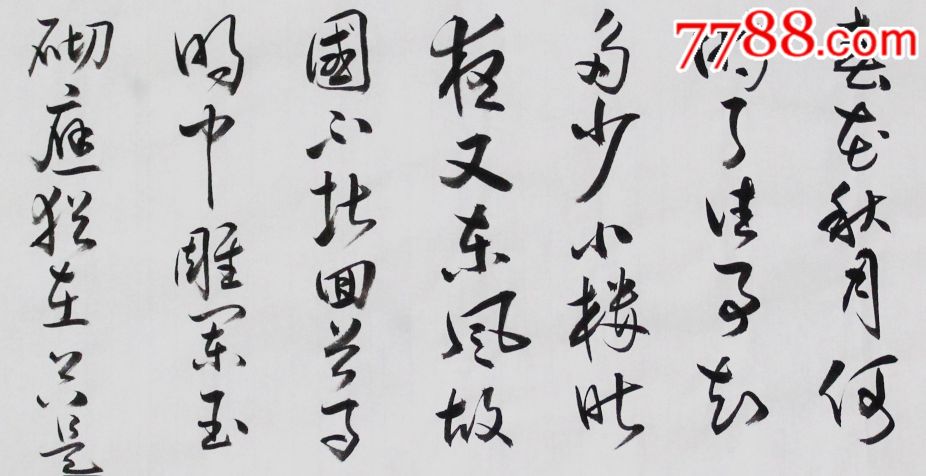 7788.com
春花秋月何
時了往事知
多少小樓昨
夜又東風故
國不堪回首月
明中雕闌玉
砌應猶在只是